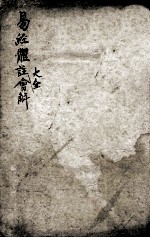 易經體註會解
大全